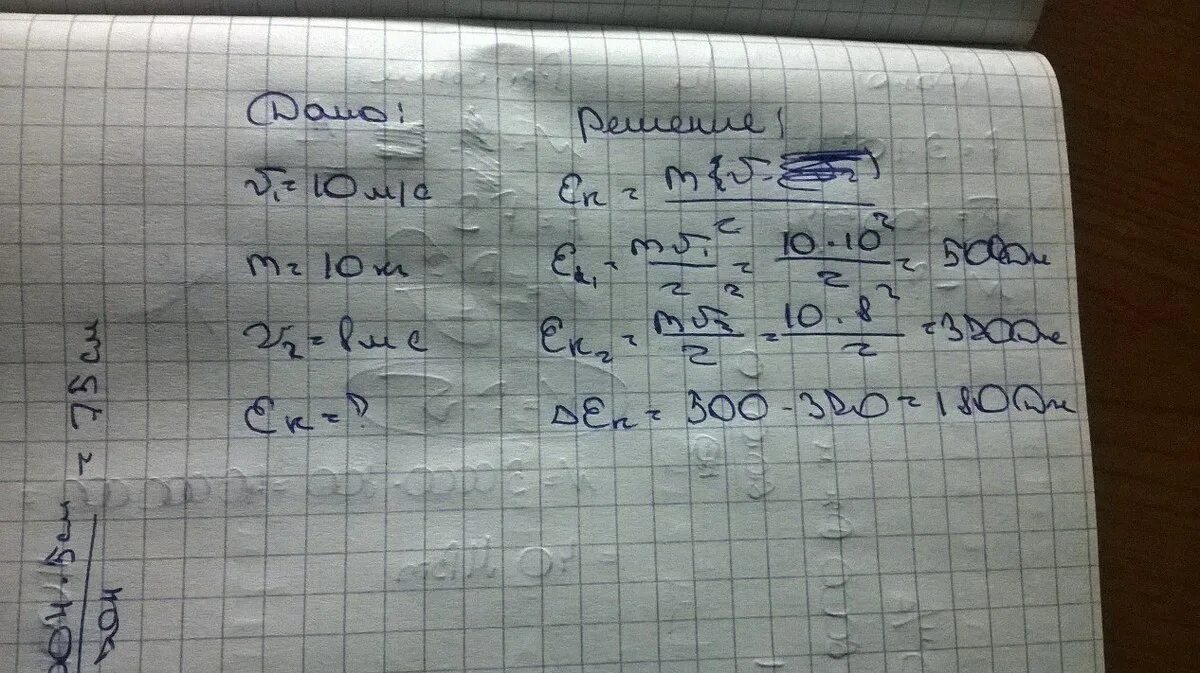 Дано:
v₁ = 10 м/с
m = 10 кг
v₂ = 8 мс
Eк = ?
Решение:
Eк = m(v-
Eк₁ = mv₁²/2 = 10·10²/2 = 500Дж
Eк₂ = mv₂²/2 = 10·8²/2 = 320Дж
ΔEк = 500 - 320 = 180Дж
= 75см